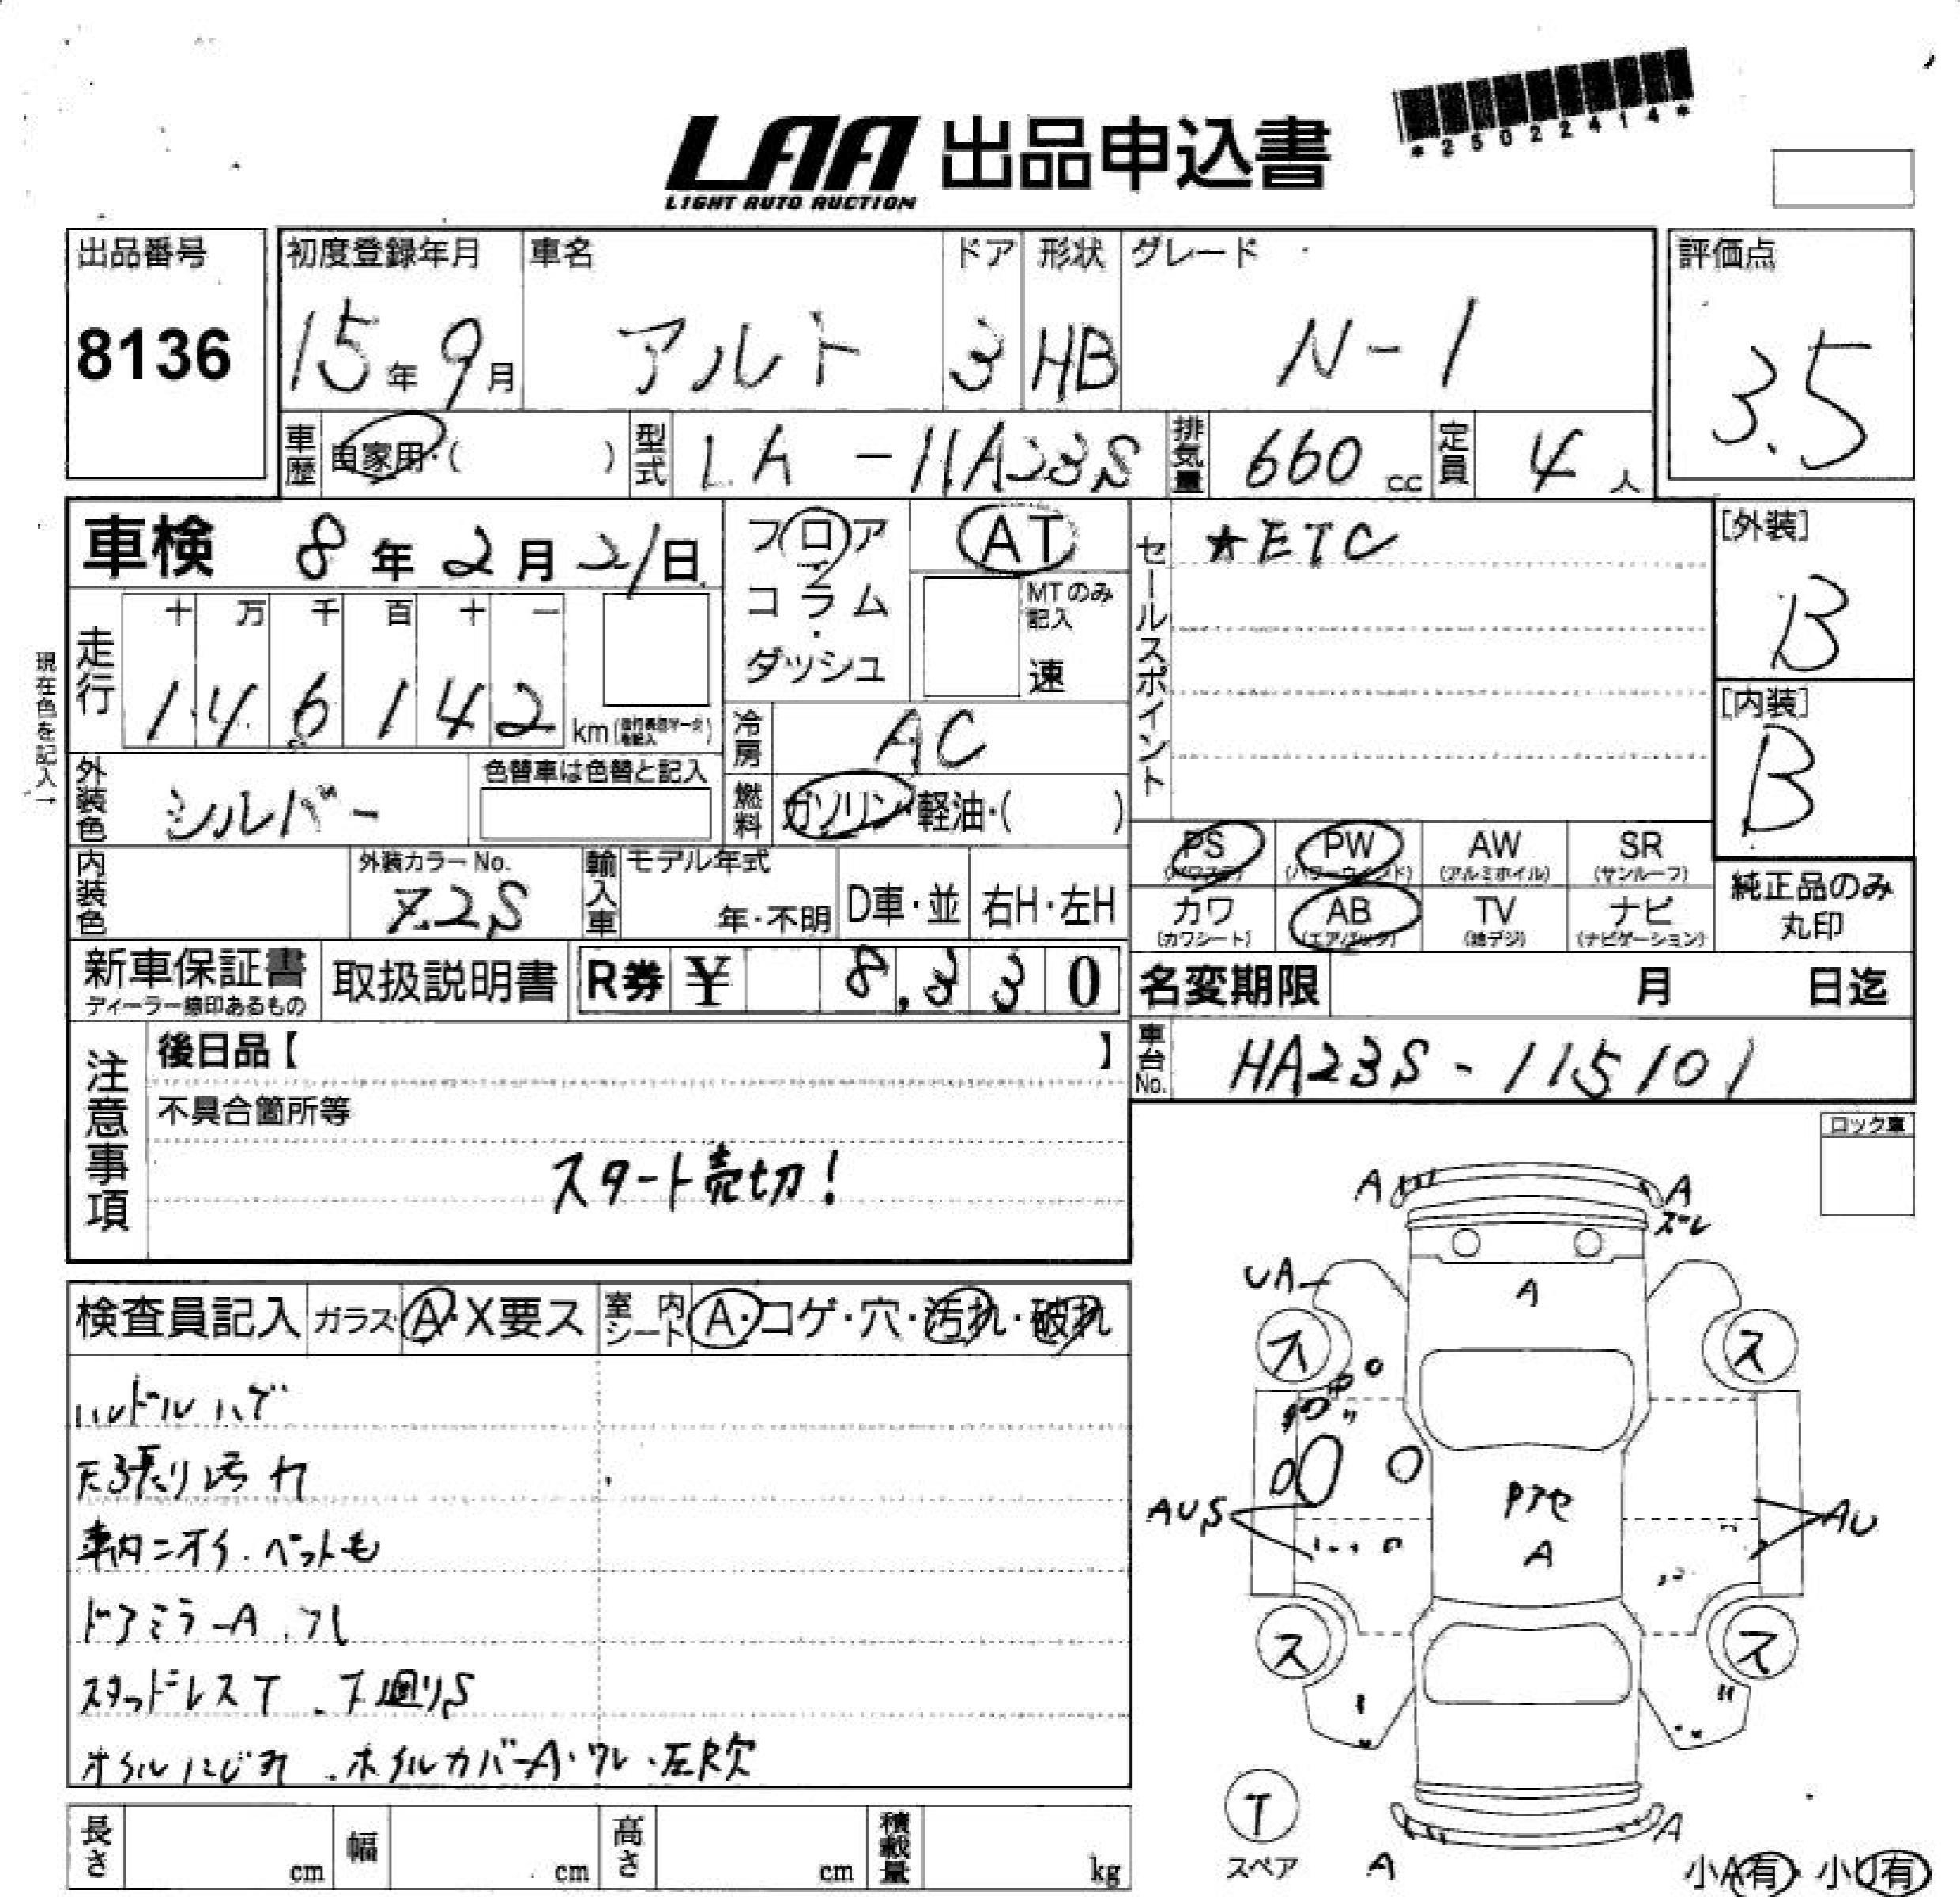 LAA 出品申込書
LIGHT AUTO AUCTION
*25022414*
出品番号
8136
初度登録年月
15年9月
車名
アルト
ドア
3
形状
HB
グレード
N-1
評価点
3.5
車歴
自家用・( )
型式
LA-HA23S
排気量
660 cc
定員
4人
車検 8年2月21日
フロア
コラム
・
ダッシュ
AT
MTのみ
記入
速
セールスポイント
★ETC
[外装]
B
[内装]
B
現在色を記入→
走行
十 万 千 百 十 一
1 4 6 1 4 2
km
冷房
AC
外装色
シルバー
色替車は色替と記入
燃料
ガソリン・軽油・( )
内装色
外装カラーNo.
Z2S
輸入車
モデル年式
年・不明
D車・並
右H・左H
PS
(パワステ)
PW
(パワーウインド)
AW
(アルミホイル)
SR
(サンルーフ)
カワ
(カワシート)
AB
(エアバック)
TV
(地デジ)
ナビ
(ナビゲーション)
純正品のみ
丸印
新車保証書
ディーラー線印あるもの
取扱説明書
R券 ¥ 8,330
名変期限 月 日迄
車台No.
HA23S-115101
注意事項
後日品【 】
不具合箇所等
スタート売切!
ロック車
検査員記入
ガラス A・X要ス
室内
シート
A・コゲ・穴・汚れ・破れ
ハンドルハゲ
天張り汚れ
車内ニオイ.ペットも
ドアミラーA.ワレ
スタッドレスT.下廻りS
オイルにじみ.ホイルカバーA・ワレ・左R欠
A
A
ズレ
UA
A
ス
ス
AUS
Pアセ
A
AU
ス
ス
T
スペア
A
A
小A有・小U有
長さ
cm
幅
cm
高さ
cm
積載量
kg